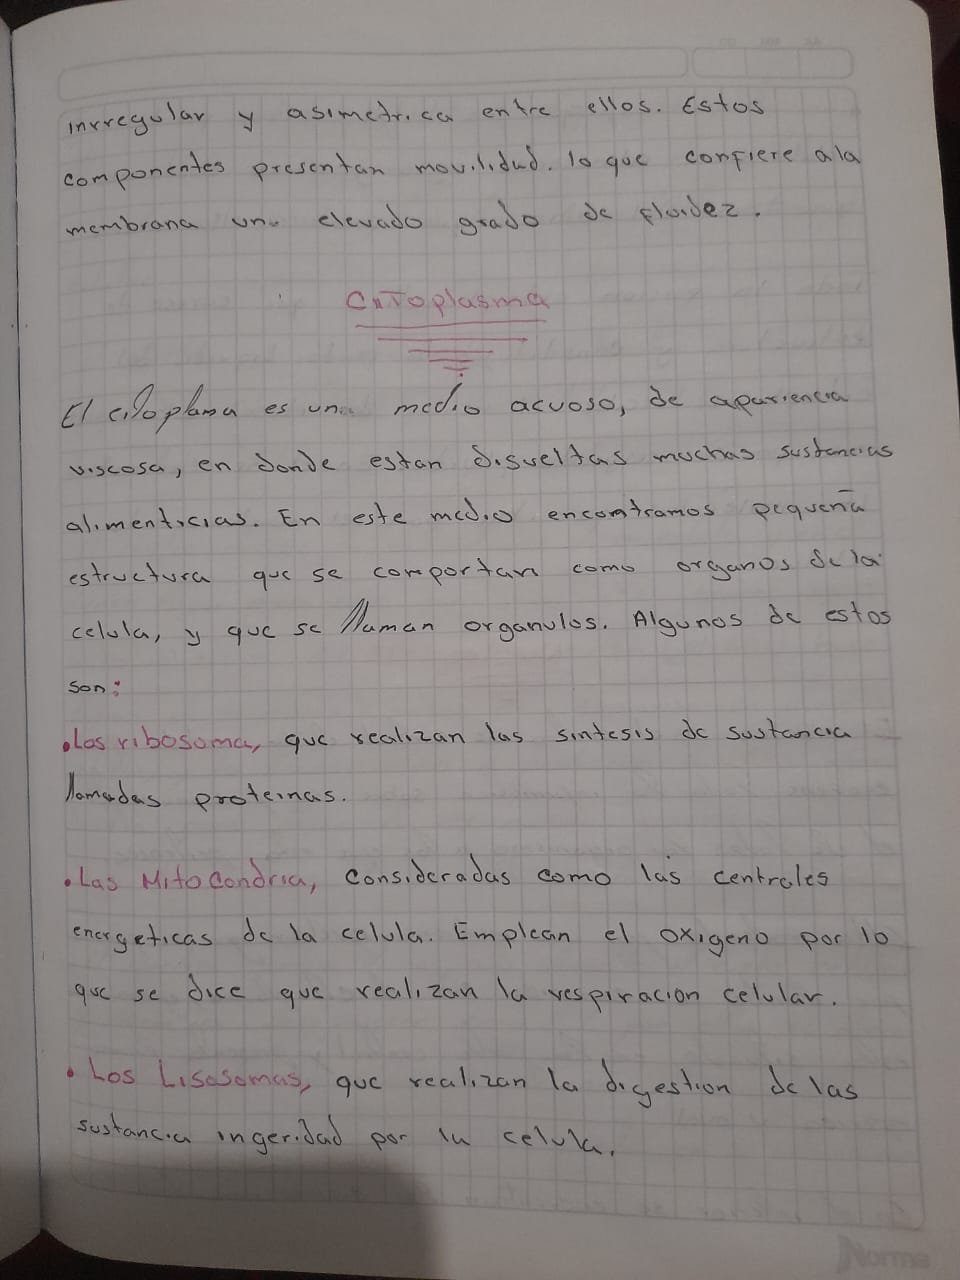 inrregular y asimetrica entre ellos. Estos
componentes presentan movilidad. lo que confiere ala
membrana una elevado grado de fluidez.
CiToplasma
El citoplama es una medio acuoso, de apariencia
viscosa, en donde estan disueltas muchas sustancias
alimenticias. En este medio encontramos pequeña
estructura que se comportan como organos de la
celula, y que se llaman organulos. Algunos de estos
son:
• Los ribosoma, que realizan las sintesis de sustancia
llamadas proteinas.
• Las Mitocondria, consideradas como las centrales
energeticas de la celula. Emplean el oxigeno por lo
que se dice que realizan la respiracion celular.
• Los Lisosomas, que realizan la digestion de las
sustancia ingeridad por la celula.
Norma